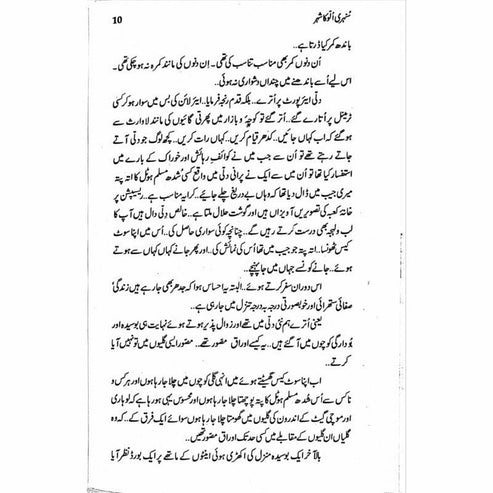 سنہری اُلّو کا شہر
10
باندھ کمر کیا ڈرتا ہے..
اُن دنوں کمر بھی مناسب تناسب کی تھی۔ اِن دنوں کی مانند کمرہ نہ ہو چکی تھی۔
اس لیے اُسے باندھنے میں چنداں دشواری نہ ہوئی..
دلّی ایئر پورٹ پر اُترے.. بلکہ قدم رنجہ فرمایا.. ایئر لائن کی بس میں سوار ہو کر کسی
ٹرمینل پر اُتارے گئے.. اُتر گئے تو کوچہ و بازار میں پھرتی گائیوں کی مانند لاوارث سے
ہو گئے کہ اب کہاں جائیں.. کدھر قیام کریں.. کہاں رات کریں.. کچھ لوگ جو دلّی آتے
جاتے رہتے تھے تو اُن سے جب میں نے کوائفِ رہائش اور خوراک کے بارے میں
استفسار کیا تھا تو اُن میں سے ایک نے پرانی دلّی میں واقع کسی شُدھ مسلم ہوٹل کا اتہ پتہ
میری جیب میں ڈال دیا تھا کہ وہاں بے دریغ چلے جائیے.. کرایہ مناسب ہے.. ریسیپشن پر
خانۂ کعبہ کی تصویریں آویزاں ہیں اور گوشت حلال ملتا ہے.. خالص دلّی والے ہیں آپ کا
لب و لہجہ بھی درست کرتے رہیں گے.. چنانچہ کوئی سواری حاصل کی.. اُس میں اپنا سوٹ
کیس ٹھونسا.. اتہ پتہ جو جیب میں تھا اُس کی نمائش کی.. اور پھر جانے کہاں کہاں سے ہوتے
ہوئے.. جانے کونسے جہاں میں جا پہنچے..
اس دوران سفر کرتے ہوئے.. البتہ یہ احساس ہوا کہ جدھر بھی جا رہے ہیں زندگی'
صفائی ستھرائی اور خوبصورتی درجہ بہ درجہ تنزل میں جا رہی ہے..
یعنی اُترے ہم نئی دلّی میں تھے اور زوال پذیر ہوتے ہوئے نہایت ہی بوسیدہ اور
کُوچوں میں آ گئے ہیں.. یہ کیسے اوراقِ مصوّر تھے.. مصوّر ایسی گلیوں میں تو نہیں آیا
کرتے..
اب اپنا سوٹ کیس گھسیٹتے ہوئے میں انہی گلی کوچوں میں چلا جا رہا ہوں اور ہر کس و
ناکس سے اُس شُدھ مسلم ہوٹل کا پتہ پوچھتا چلا جا رہا ہوں اور محسوس یہی ہو رہا ہے کہ لوہاری
اور موچی گیٹ کے اندرون کی گلیوں میں گھومتا چلا جا رہا ہوں سوائے ایک فرق کے.. کہ وہ
گلیاں ان گلیوں کے مقابلے میں کسی حد تک اوراقِ مصوّر تھیں..
بالآخر ایک بوسیدہ منزل کی اکھڑی ہوئی اینٹوں کے ماتھے پر ایک بورڈ نظر آیا